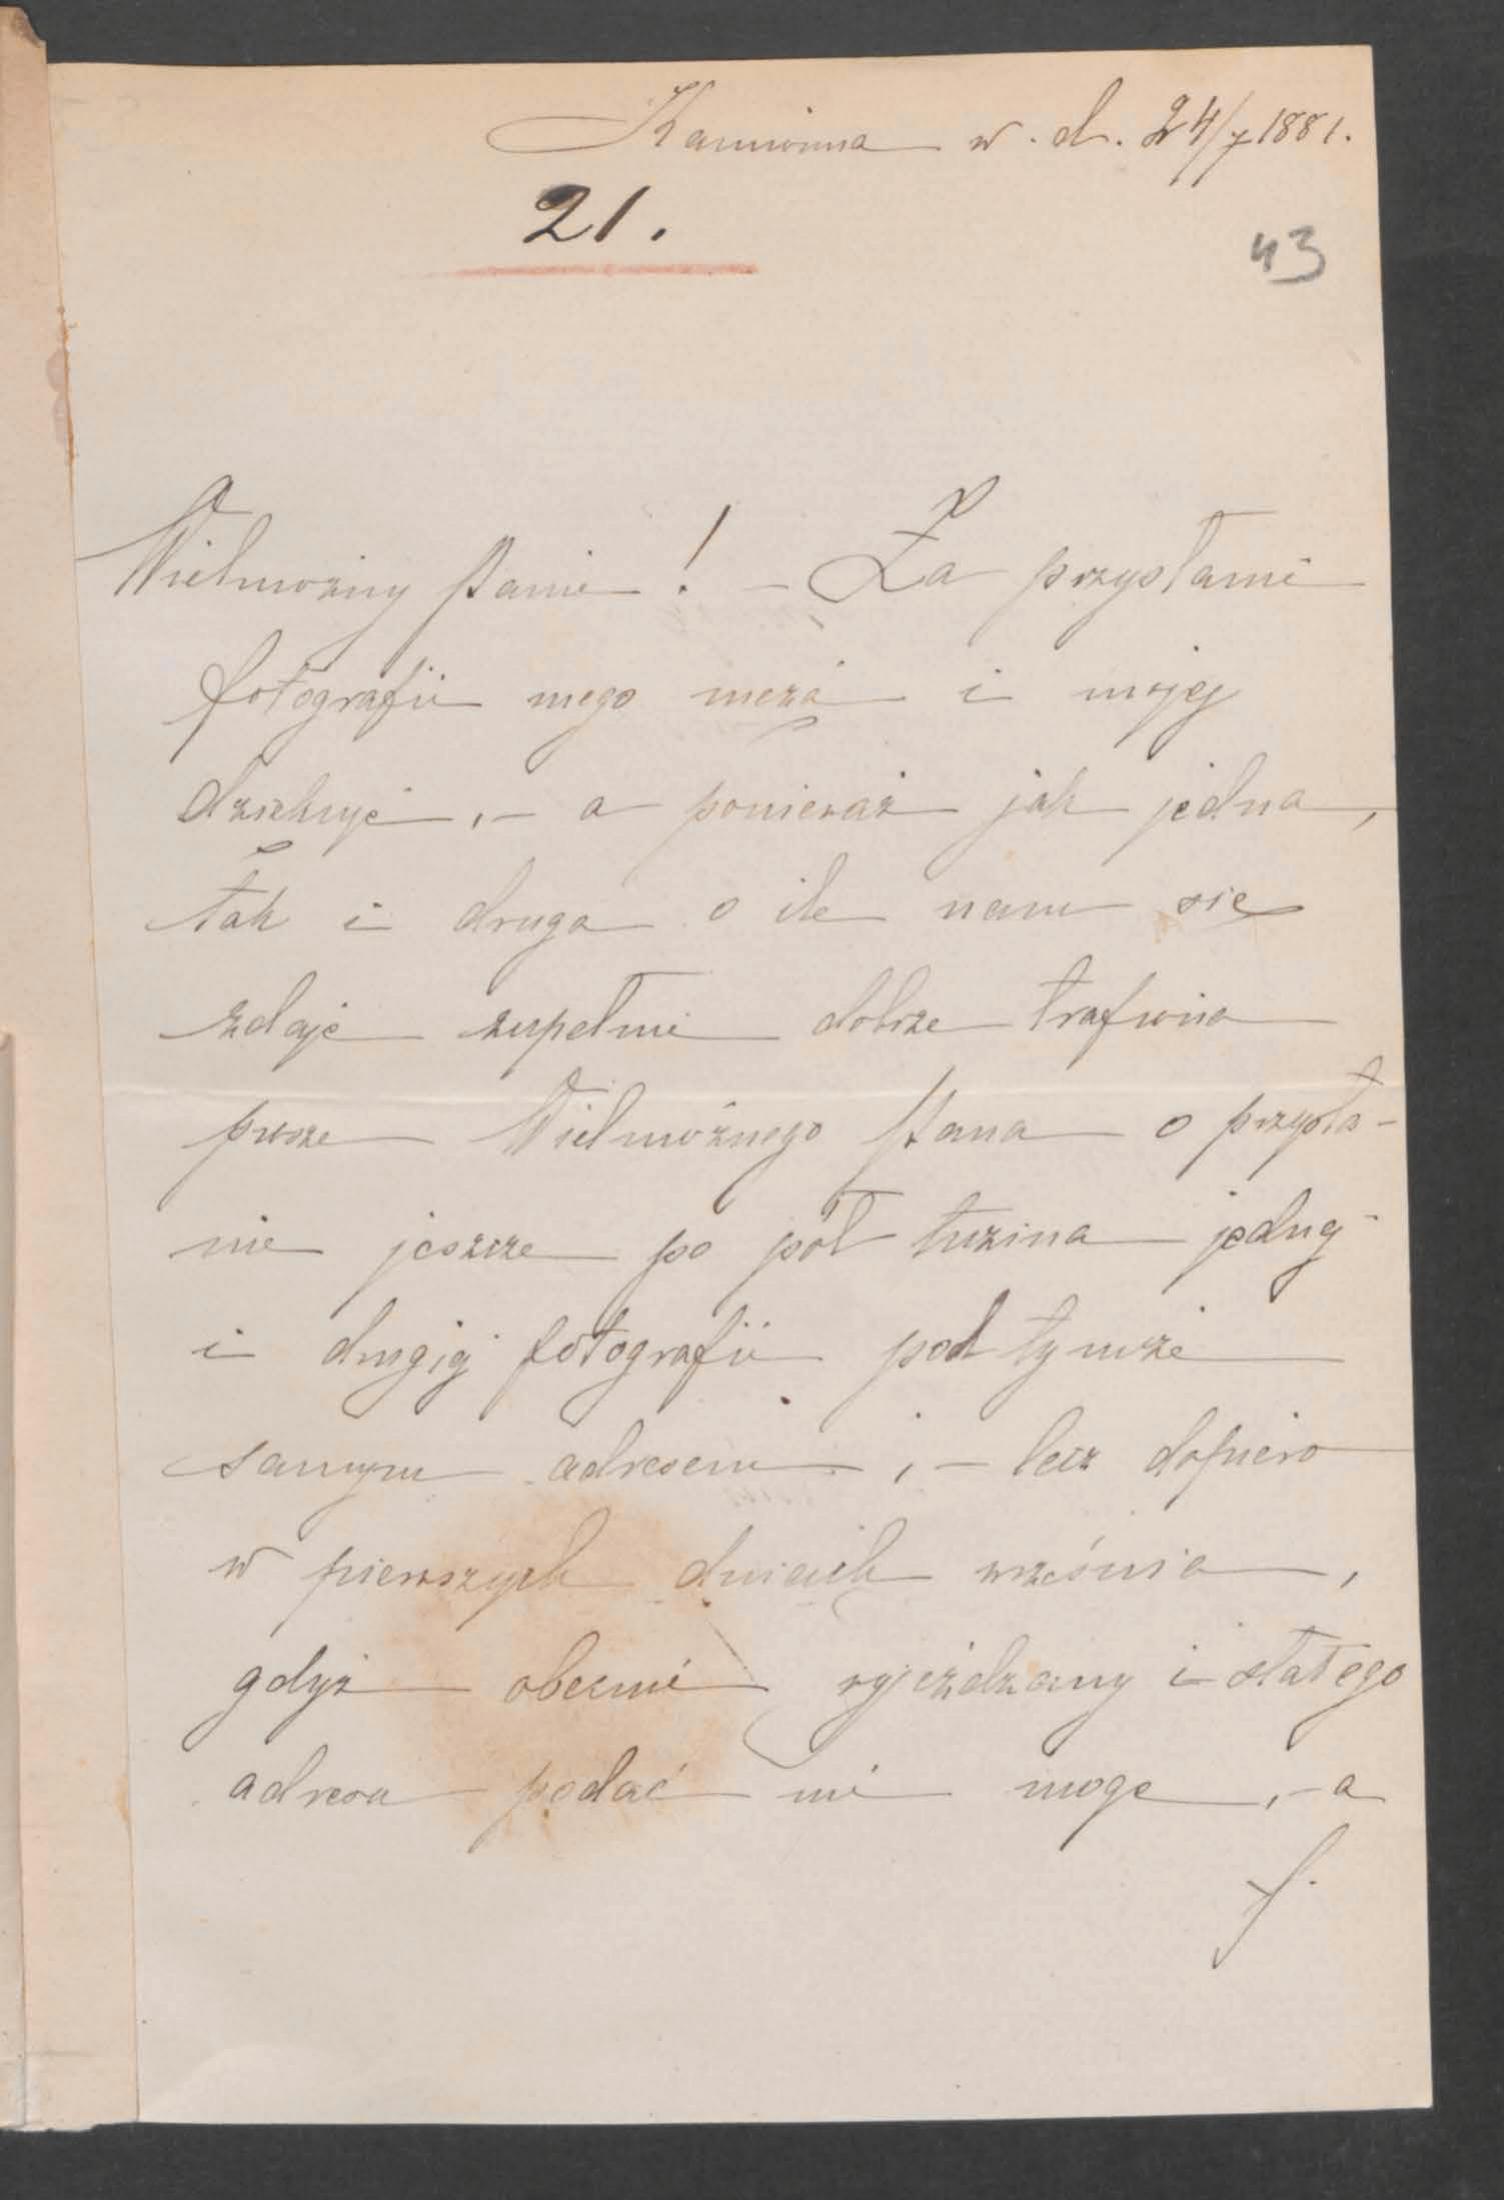 Kamionna w. d. 24/7 1881.
21.
43
Wielmożny Panie! – Za przysłanie
fotografii mego męża i mojej
dziękuję, – a ponieważ jak jedna,
tak i druga o ile nam się
zdaje zupełnie dobrze trafiona
proszę Wielmożnego Pana o przysła-
nie jeszcze po pół tuzina jednej
i drugiej fotografii pod tymże
samym adresem, – lecz dopiero
w pierwszych dniach września,
gdyż obecnie wyjeżdżamy i stałego
adresu podać nie mogę, – a